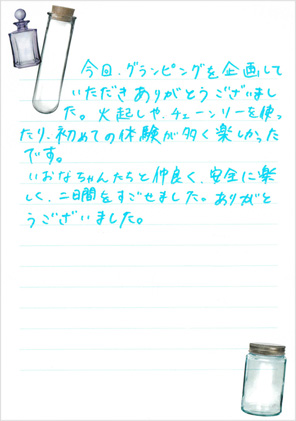 今回、グランピングを企画して
いただきありがとうございまし
た。火起しや、チェーンリーを使っ
たり、初めての体験が多く楽しかった
です。
いおなちゃんたちと仲良く、安全に楽
しく、二日間をすごせました。ありがと
うございました。